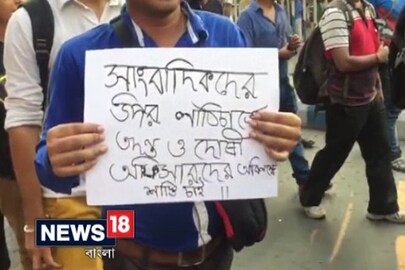 সাংবাদিকদের
উপর লাঠিচার্জে
তদন্ত ও দোষী
অফিসারদের অবিলম্বে
শাস্তি চাই !!
NEWS 18
বাংলা